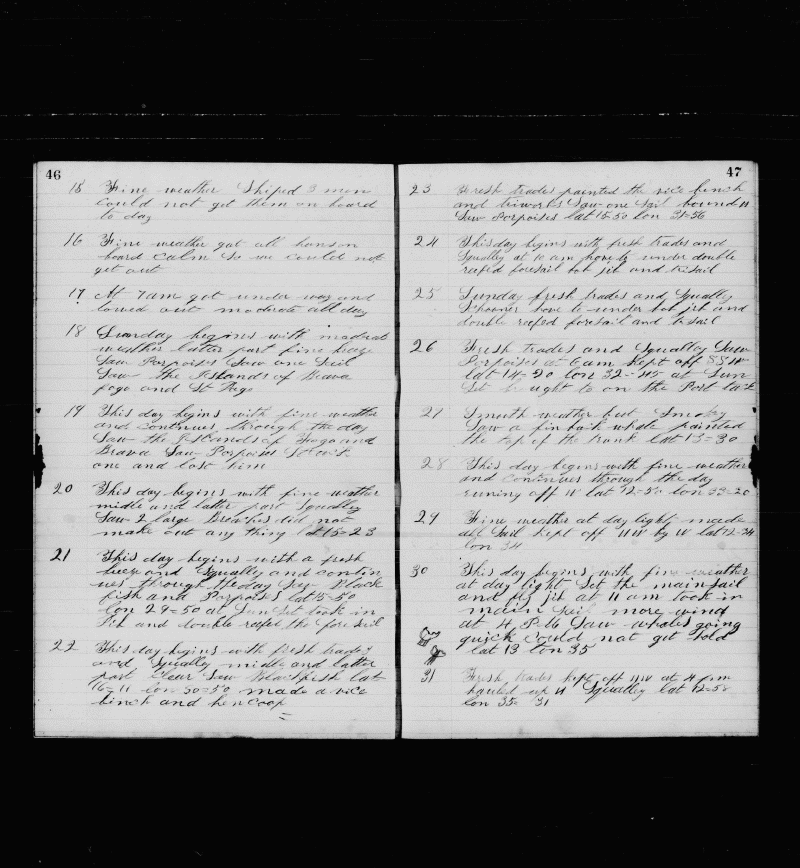 46
15 Fine weather Shiped 3 men
could not get them on board
to day
16 Fine weather got all hans on
board calm so we could not
get out
17 At 7 am got under way and
towed out moderate all day
18 Sunday begins with moderate
weather latter part fine breze
Saw Porpoises Saw one Sail
Saw the Islands of Brava
fogo and St
19 This day begins with fine weather
and continues through the day
Saw the Islands of Fogo and
Brava Saw Porpoises Struck
one and lost him
20 This day begins with fine weather
midle and latter part Squalley
Saw 2 large Breaches did not
make out any thing lat 15=23
21 This day begins with a fresh
breze and Squally and contin
ues through the day Saw Black
fish and Porpoises lat 15=50
lon 29=50 at Sun Set took in
Jib and double reefed the foresail
22 This day begins with fresh trades
and Squally midle and latter
part Clear Saw Blackfish lat
16=11 lon 30=50 made a vice
binch and hen coop
47
23 Fresh trades painted the vice binch
and triworks Saw one Sail bound
Saw Porpoises lat 15=50 lon 31=56
24 This day begins with fresh trades and
Squally at 10 am hove to under double
reefed foresail bob jib and trisail
25 Sunday fresh trades and Squally
Schooner hove to under bob jib and
double reefed foresail and trisail
26 Fresh trades and Squalley Saw
Porpoises at 6 am kept off SSW
lat 14=20 lon 32=45 at Sun
Set brought to on the Port tack
27 Smooth weather but Smokey
Saw a fin back whale painted
the top of the trunk lat 13=30
28 This day begins with fine weather
and continues through the day
runing off W lat 12=50 lon 33=20
29 Fine weather at day light made
all Sail kept off NW by W lat 12=34
lon 34
30 This day begins with fine weather
at day light Set the mainsail
and fly jib at 11 am took in
main Sail more wind
at 4 P M Saw whales going
quick could not get told
lat 13 lon 35
31 Fresh trades kept off NW at 4 pm
hauled up N Squalley lat 12=50
lon 35= 31